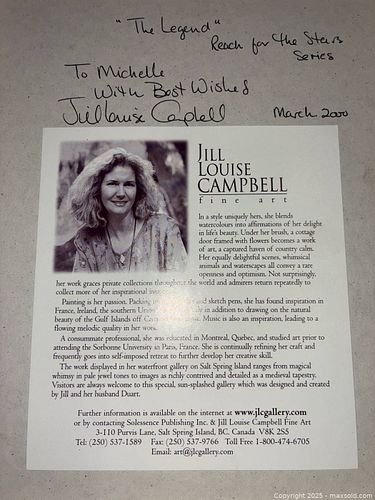 "The Legend"
Reach for the Stars
Series
To Michelle
With Best Wishes
Jill Louise Campbell
March 2000
JILL
LOUISE
CAMPBELL
fine art
In a style uniquely hers, she blends
watercolours into affirmations of her delight
in life's beauty. Under her brush, a cottage
door framed with flowers becomes a work
of art, a captured haven of country calm.
Her equally delightful scenes, whimsical
animals and waterscapes all convey a rare
openness and optimism. Not surprisingly,
her work graces private collections throughout the world and admirers return repeatedly to
collect more of her inspirational
Painting is her passion. Packing and sketch pens, she has found inspiration in
France, Ireland, the southern in addition to drawing on the natural
beauty of the Gulf Islands off Music is also an inspiration, leading to a
flowing melodic quality in her work.
A consummate professional, she was educated in Montreal, Quebec, and studied art prior to
attending the Sorbonne University in Paris, France. She is continually refining her craft and
frequently goes into self-imposed retreat to further develop her creative skill.
The work displayed in her waterfront gallery on Salt Spring Island ranges from magical
whimsy in pale jewel tones to images as richly contrived and detailed as a medieval tapestry.
Visitors are always welcome to this special, sun-splashed gallery which was designed and created
by Jill and her husband Duart.
Further information is available on the internet at www.jlcgallery.com
or by contacting Solessence Publishing Inc. & Jill Louise Campbell Fine Art
3-110 Purvis Lane, Salt Spring Island, BC. Canada V8K 2S5
Tel: (250) 537-1589 Fax: (250) 537-9766 Toll Free 1-800-474-6705
Email: art@jlcgallery.com
Copyright 2025 - maxsold.com